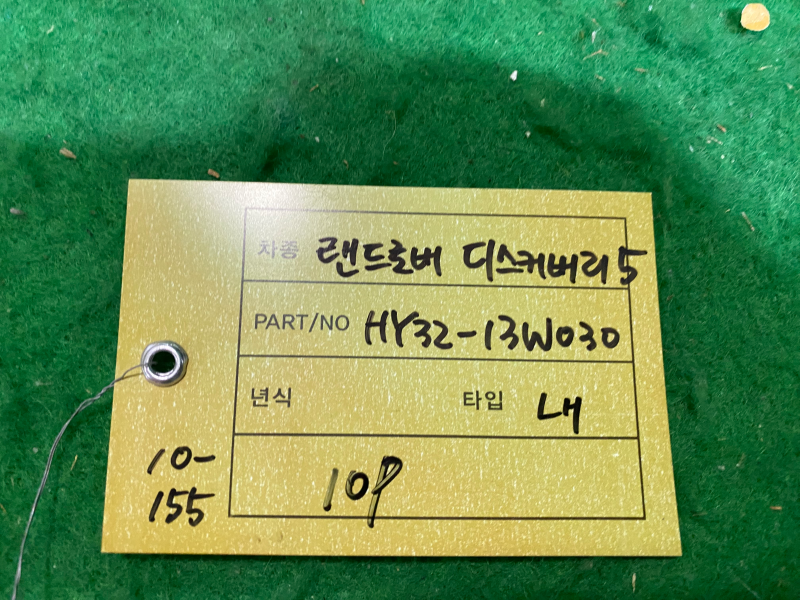 차종 랜드로버 디스커버리5
PART/NO HY32-13W030
년식 타입 내
10-
155
10P